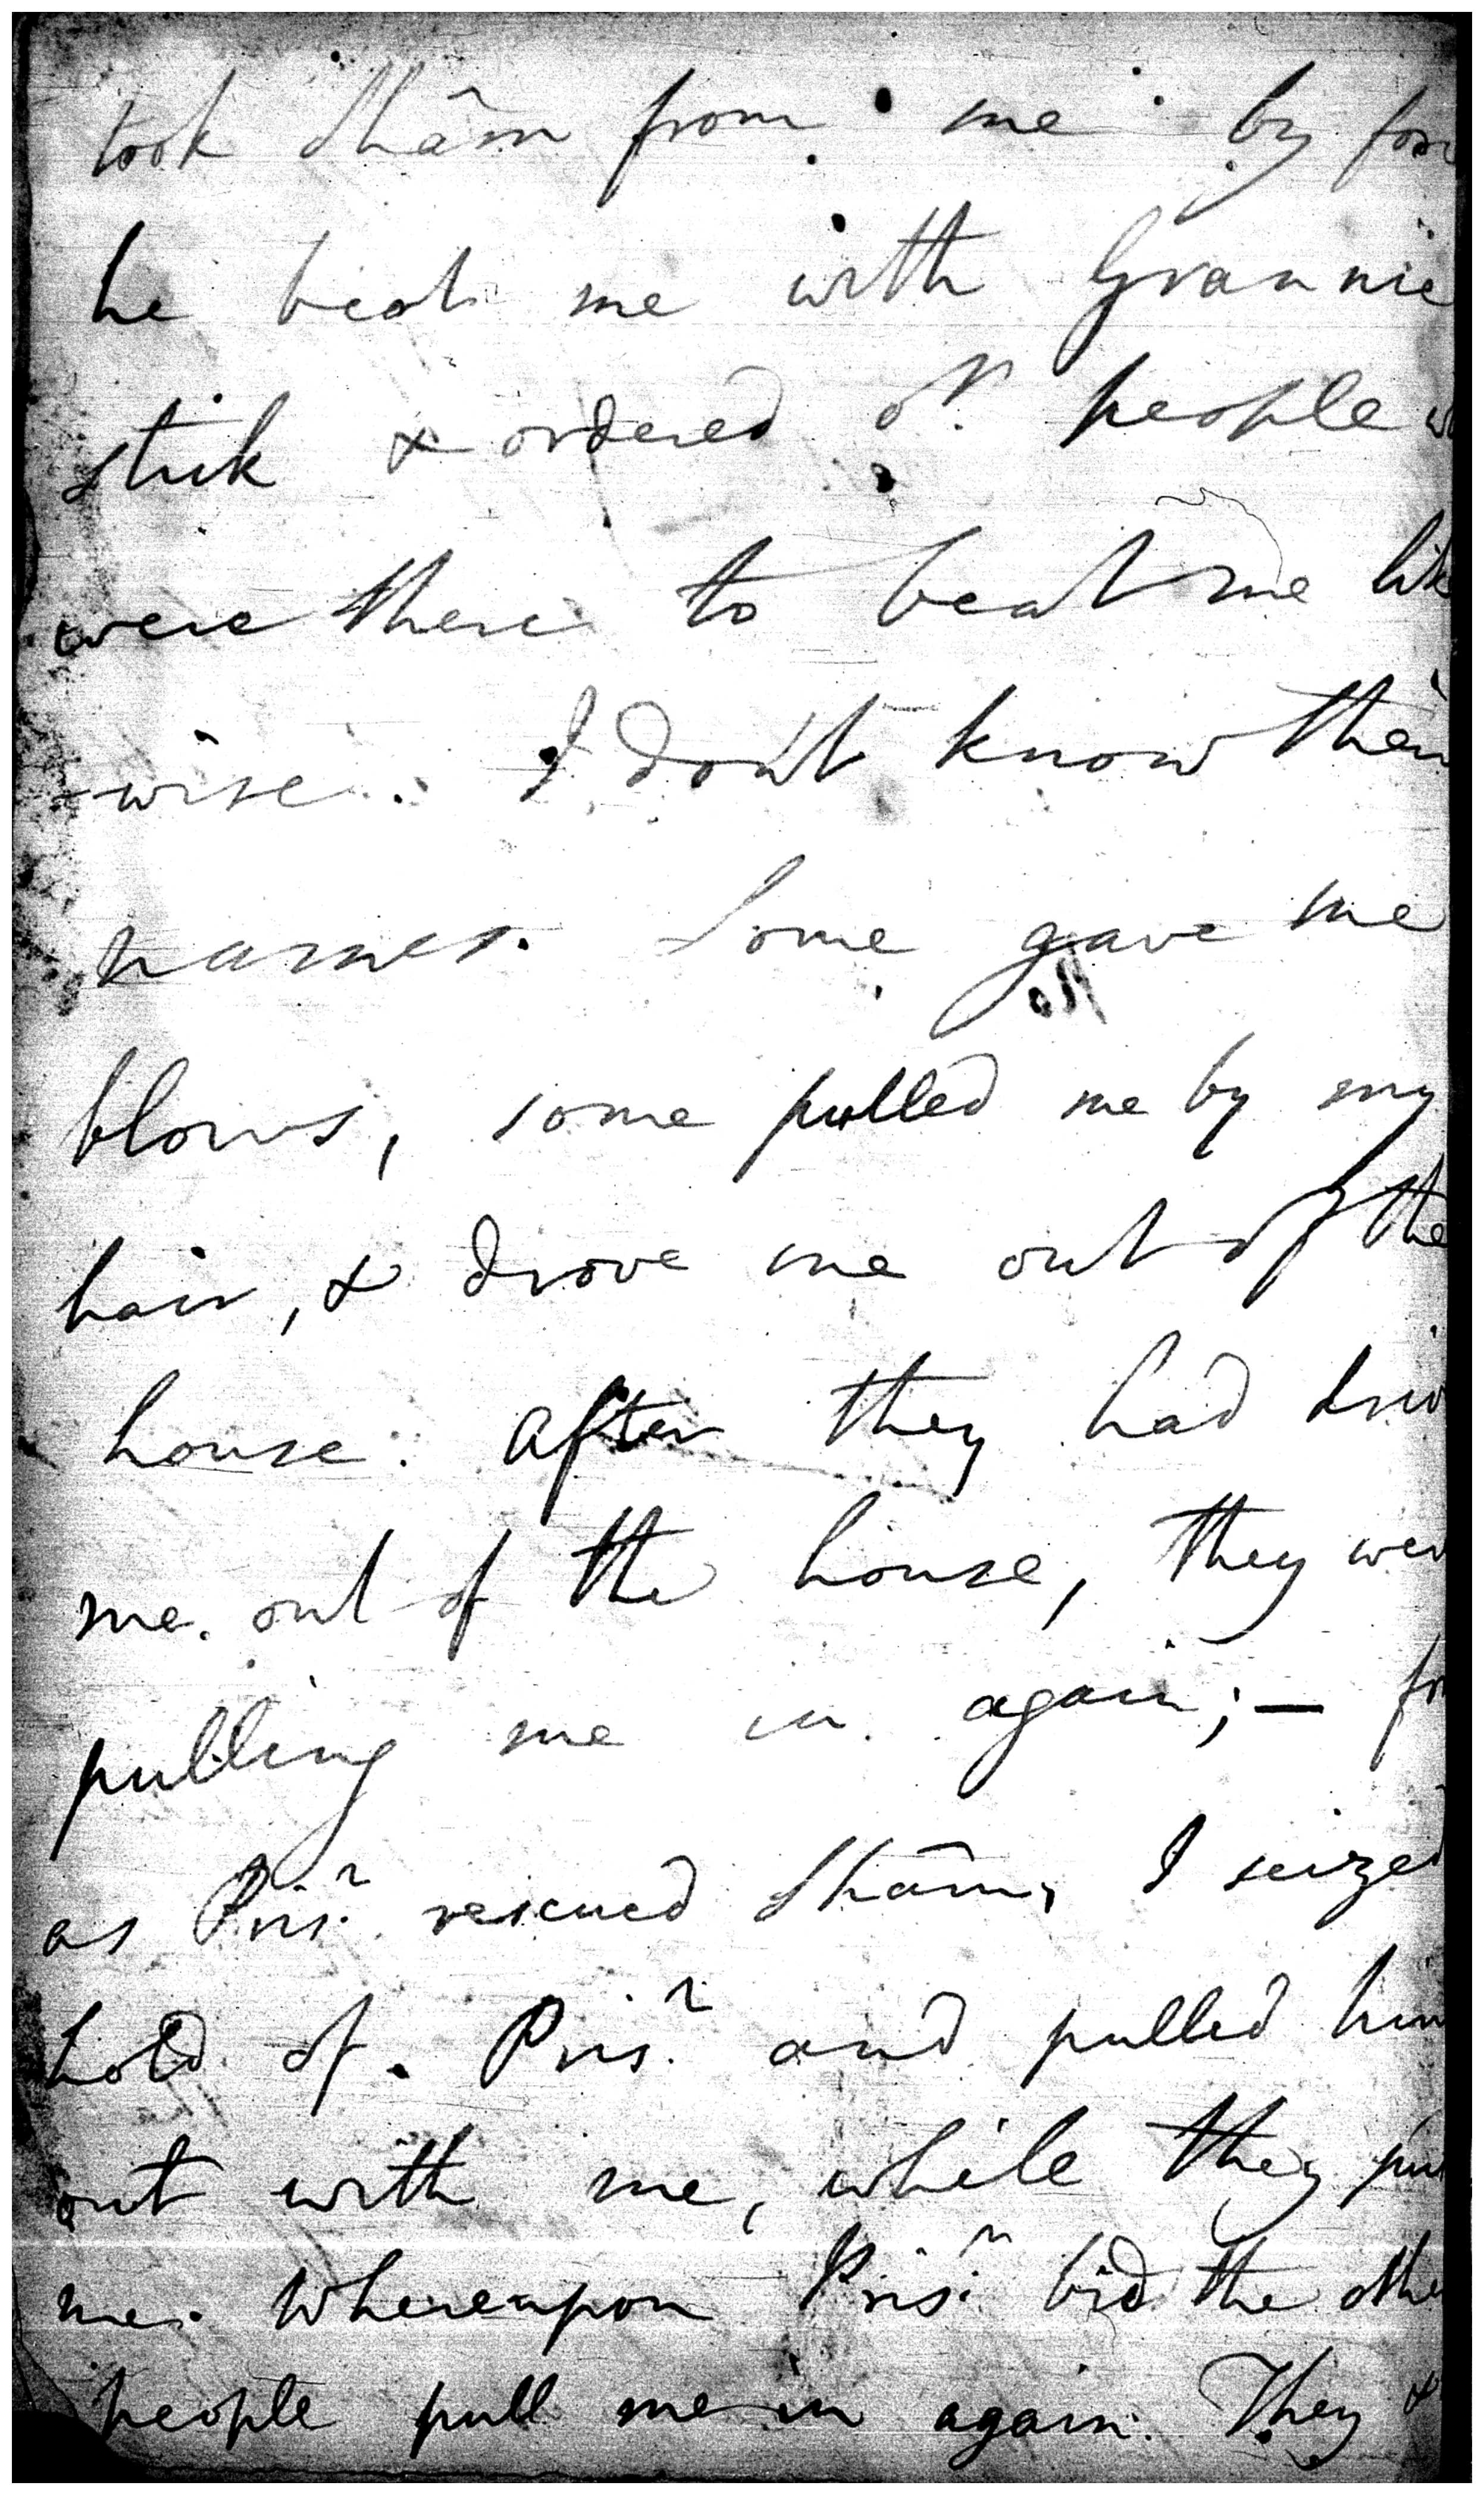 took Shâm from me by
he beat me with Grannie
stick & ordered oʳ people
were there to beat me like
wise. I don't know their
names. Some gave me
blows, some pulled me by my
hair, & drove me out of the
house. After they had
me out of the house, they were
pulling me in again; —
as Prisʳ rescued Shâm, I seized
hold of Prisʳ and pulled him
out with me, while they
me. Whereupon Prisʳ bid the other
people pull me in again. They &